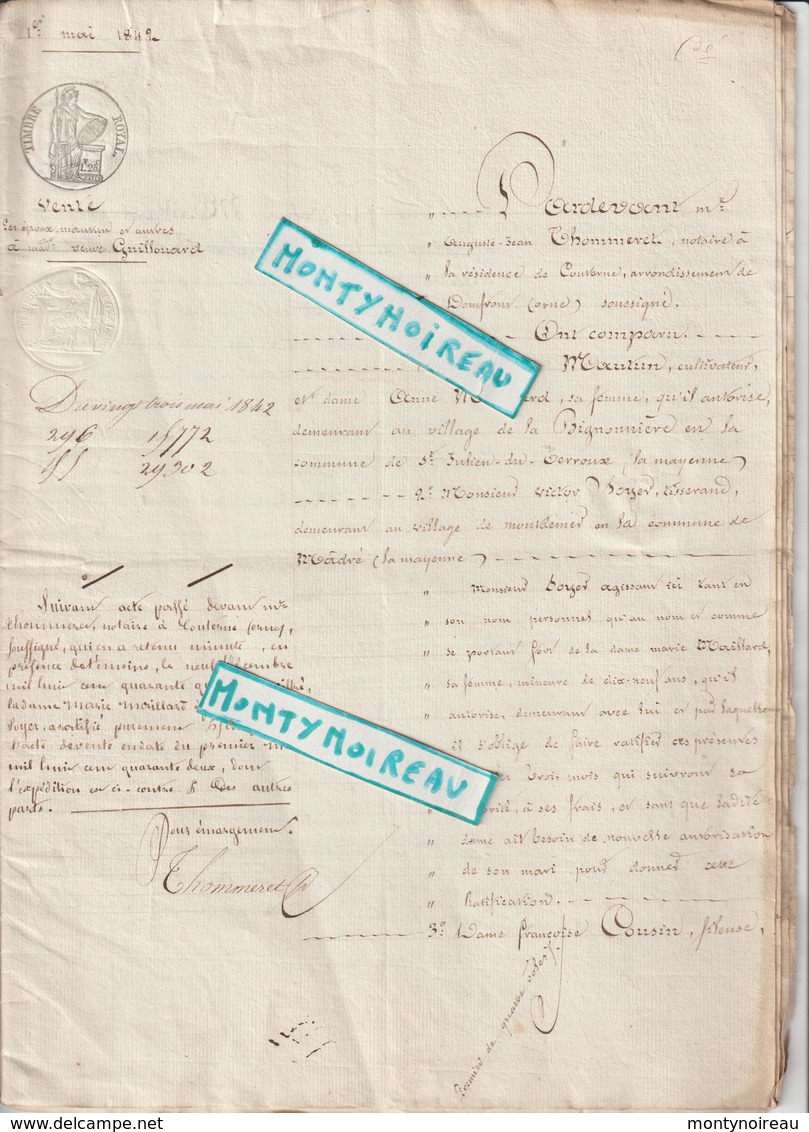 1er mai 1842
TIMBRE ROYAL
1F.25C
Vente
Les époux mautin et autres
à mad. veuve Guillouard
Du vingt trois mai 1842
296 15772
29302
Suivant acte passé devant me
Thommeret, notaire à Couterne (orne)
soussigné, qui en a retenu minute, en
présence de témoins, le neuf décembre
mil huit cent quarante
la dame Marie Maillard
boyer, a ratifié purement
l'acte de vente en date du premier
mil huit cent quarante deux, dont
l'expédition est ci-contre & des autres
parts.
Pour émargement.
Thommeret
Pardevant me
" Auguste-Jean Thommeret, notaire à
" la résidence de Couterne, arrondissement de
" Domfront (orne) soussigné.
Ont comparu.
Mautin, cultivateur,
et dame Anne , sa femme, qu'il autorise,
demeurant au village de la Bignonnière en la
commune de St Julien-du-Terroux (la mayenne)
2° Monsieur Victor Boyer, tisserand,
demeurant au village de en la commune de
Madré (la mayenne)
" Monsieur boyer agissant ici tant en
" son nom personnel qu'au nom et comme
" se portant fort de la dame marie Maillard,
" sa femme, mineure de dix-neuf ans, qu'il
" autorise, demeurant avec lui et par laquelle
il s'oblige de faire ratifier ces présentes
trois mois qui suivront sa
, à ses frais, et sans que ladite
" dame ait besoin de nouvelle autorisation
" de son mari pour donner cette
" Ratification.
3° Dame françoise Cousin, fileuse,
Premier de quatre rôles
MONTYNOIREAU
MONTYNOIREAU
delcampe.net
montynoireau